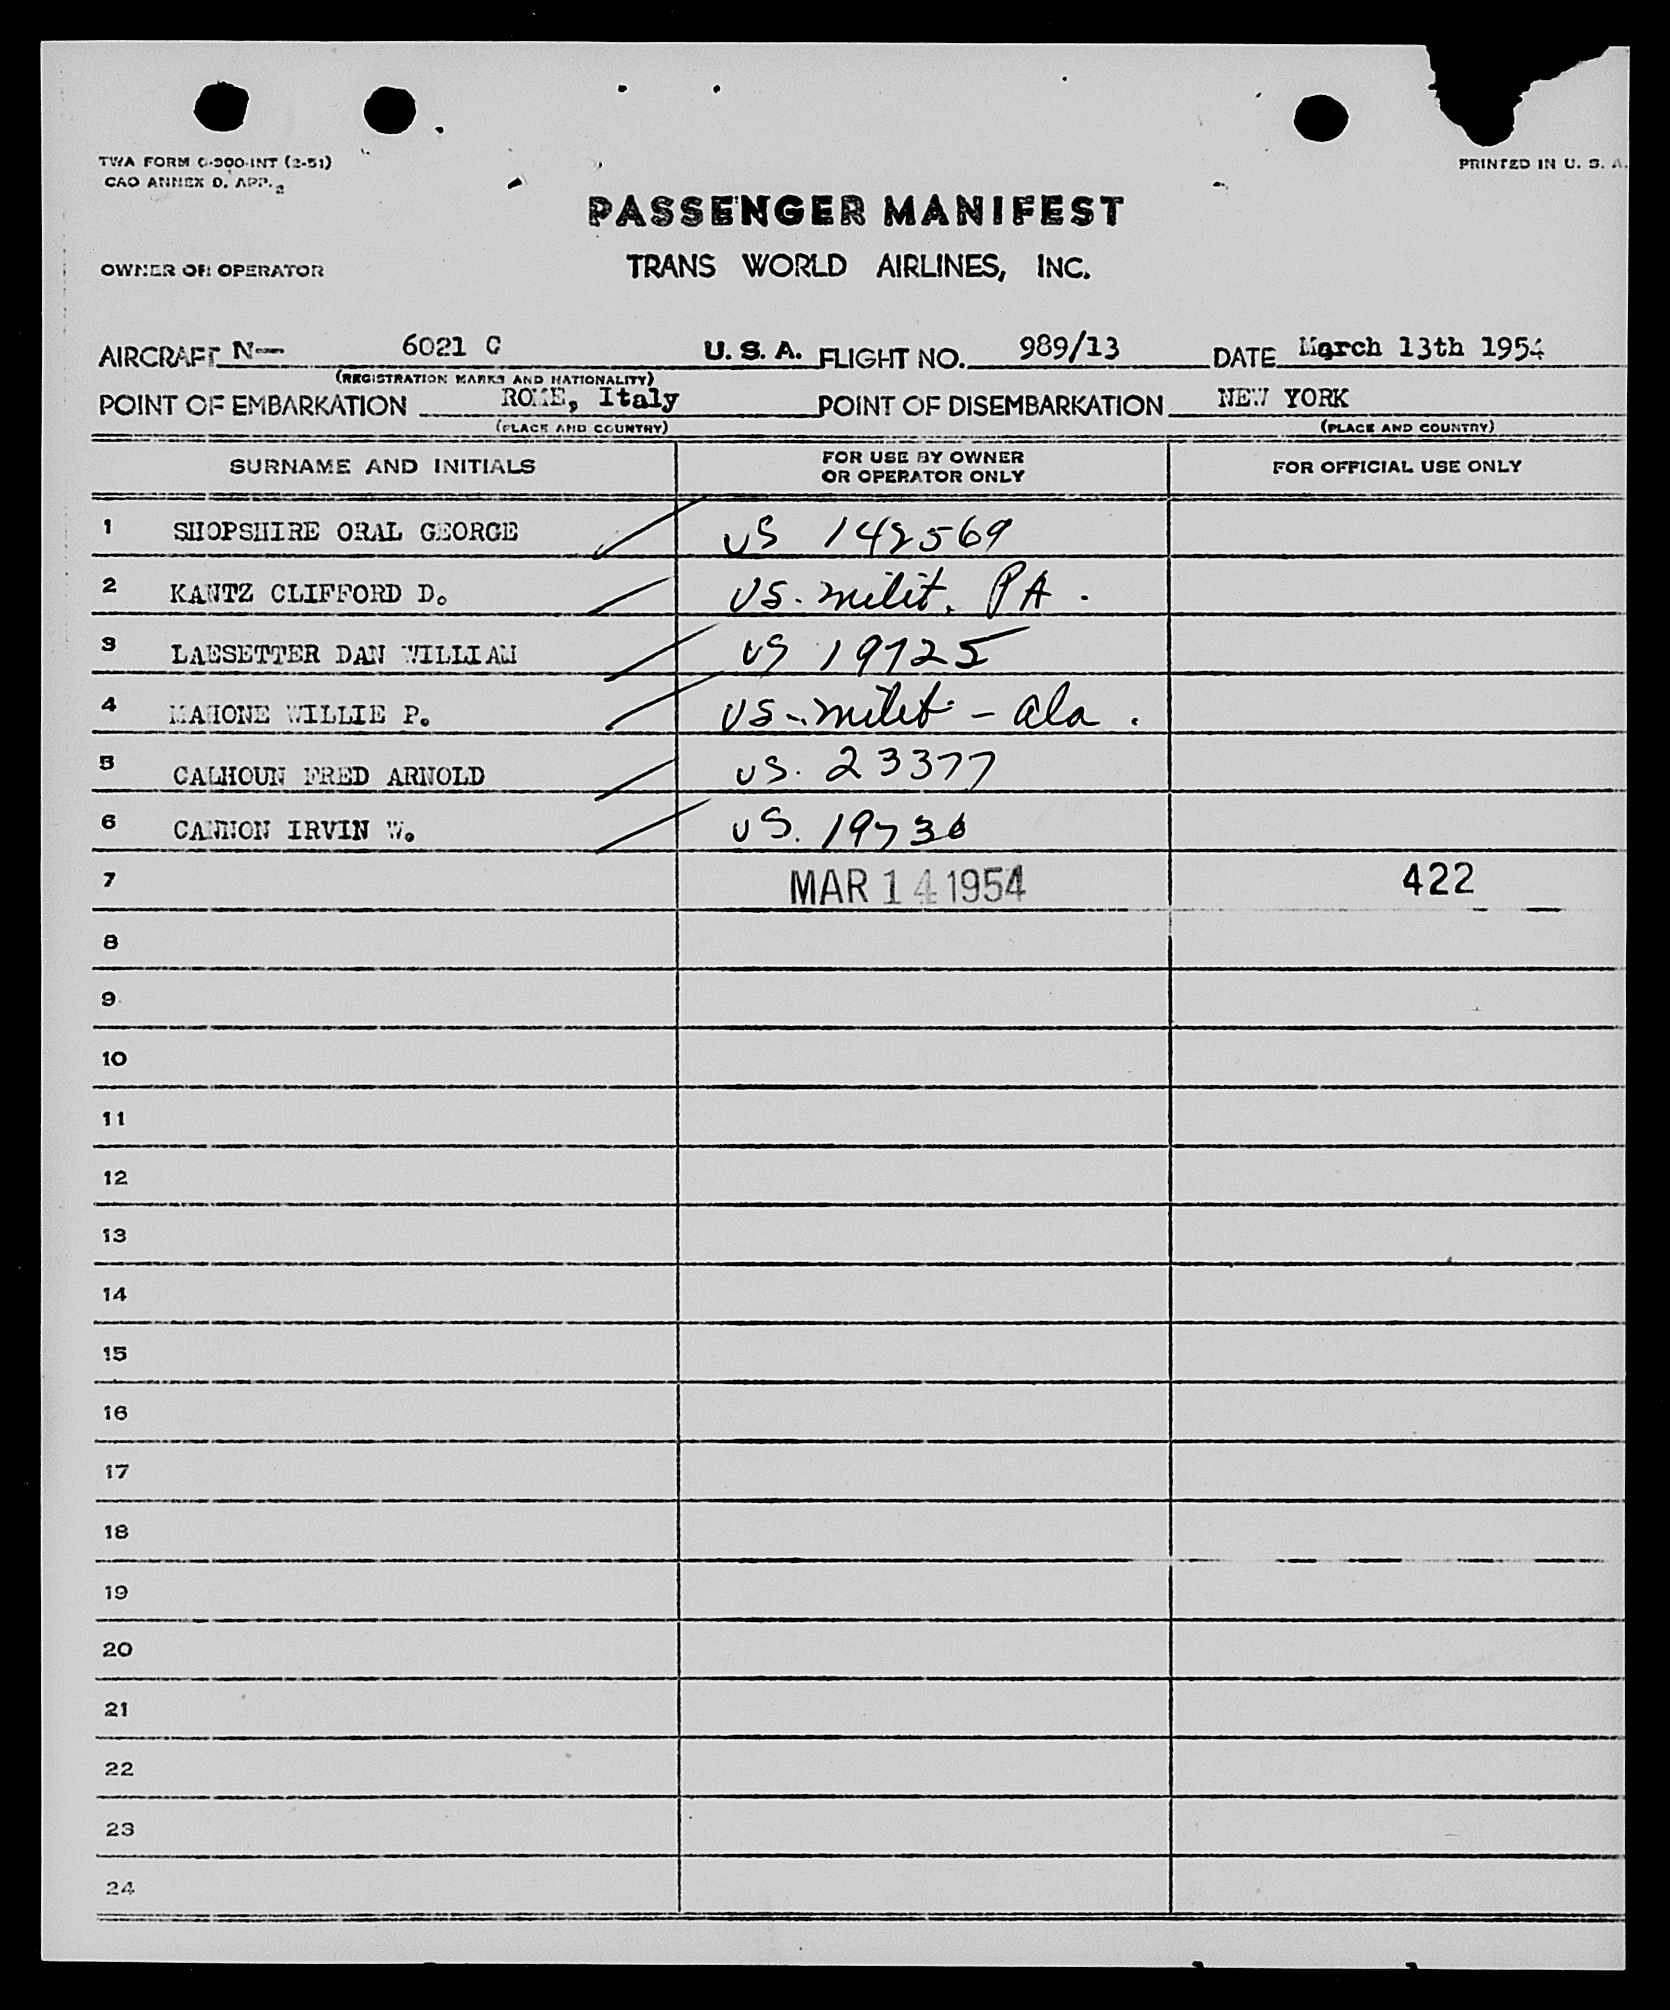 TWA FORM C-300-INT (2-51)
CAO ANNEX D, APP. 2
PRINTED IN U. S. A.
PASSENGER MANIFEST
OWNER OR OPERATOR TRANS WORLD AIRLINES, INC.
AIRCRAFT N-- 6021 C U. S. A. FLIGHT NO. 989/13 DATE March 13th 1954
(REGISTRATION MARKS AND NATIONALITY)
POINT OF EMBARKATION ROME, Italy POINT OF DISEMBARKATION NEW YORK
(PLACE AND COUNTRY) (PLACE AND COUNTRY)
SURNAME AND INITIALS FOR USE BY OWNER OR OPERATOR ONLY FOR OFFICIAL USE ONLY
1 SHOPSHIRE ORAL GEORGE US 142569
2 KANTZ CLIFFORD D. US. milit. PA.
3 LAESETTER DAN WILLIAM US 19725
4 MAHONE WILLIE P. US. milit - ala.
5 CALHOUN FRED ARNOLD US. 23377
6 CANNON IRVIN W. US. 19736
7 MAR 14 1954 422
8
9
10
11
12
13
14
15
16
17
18
19
20
21
22
23
24